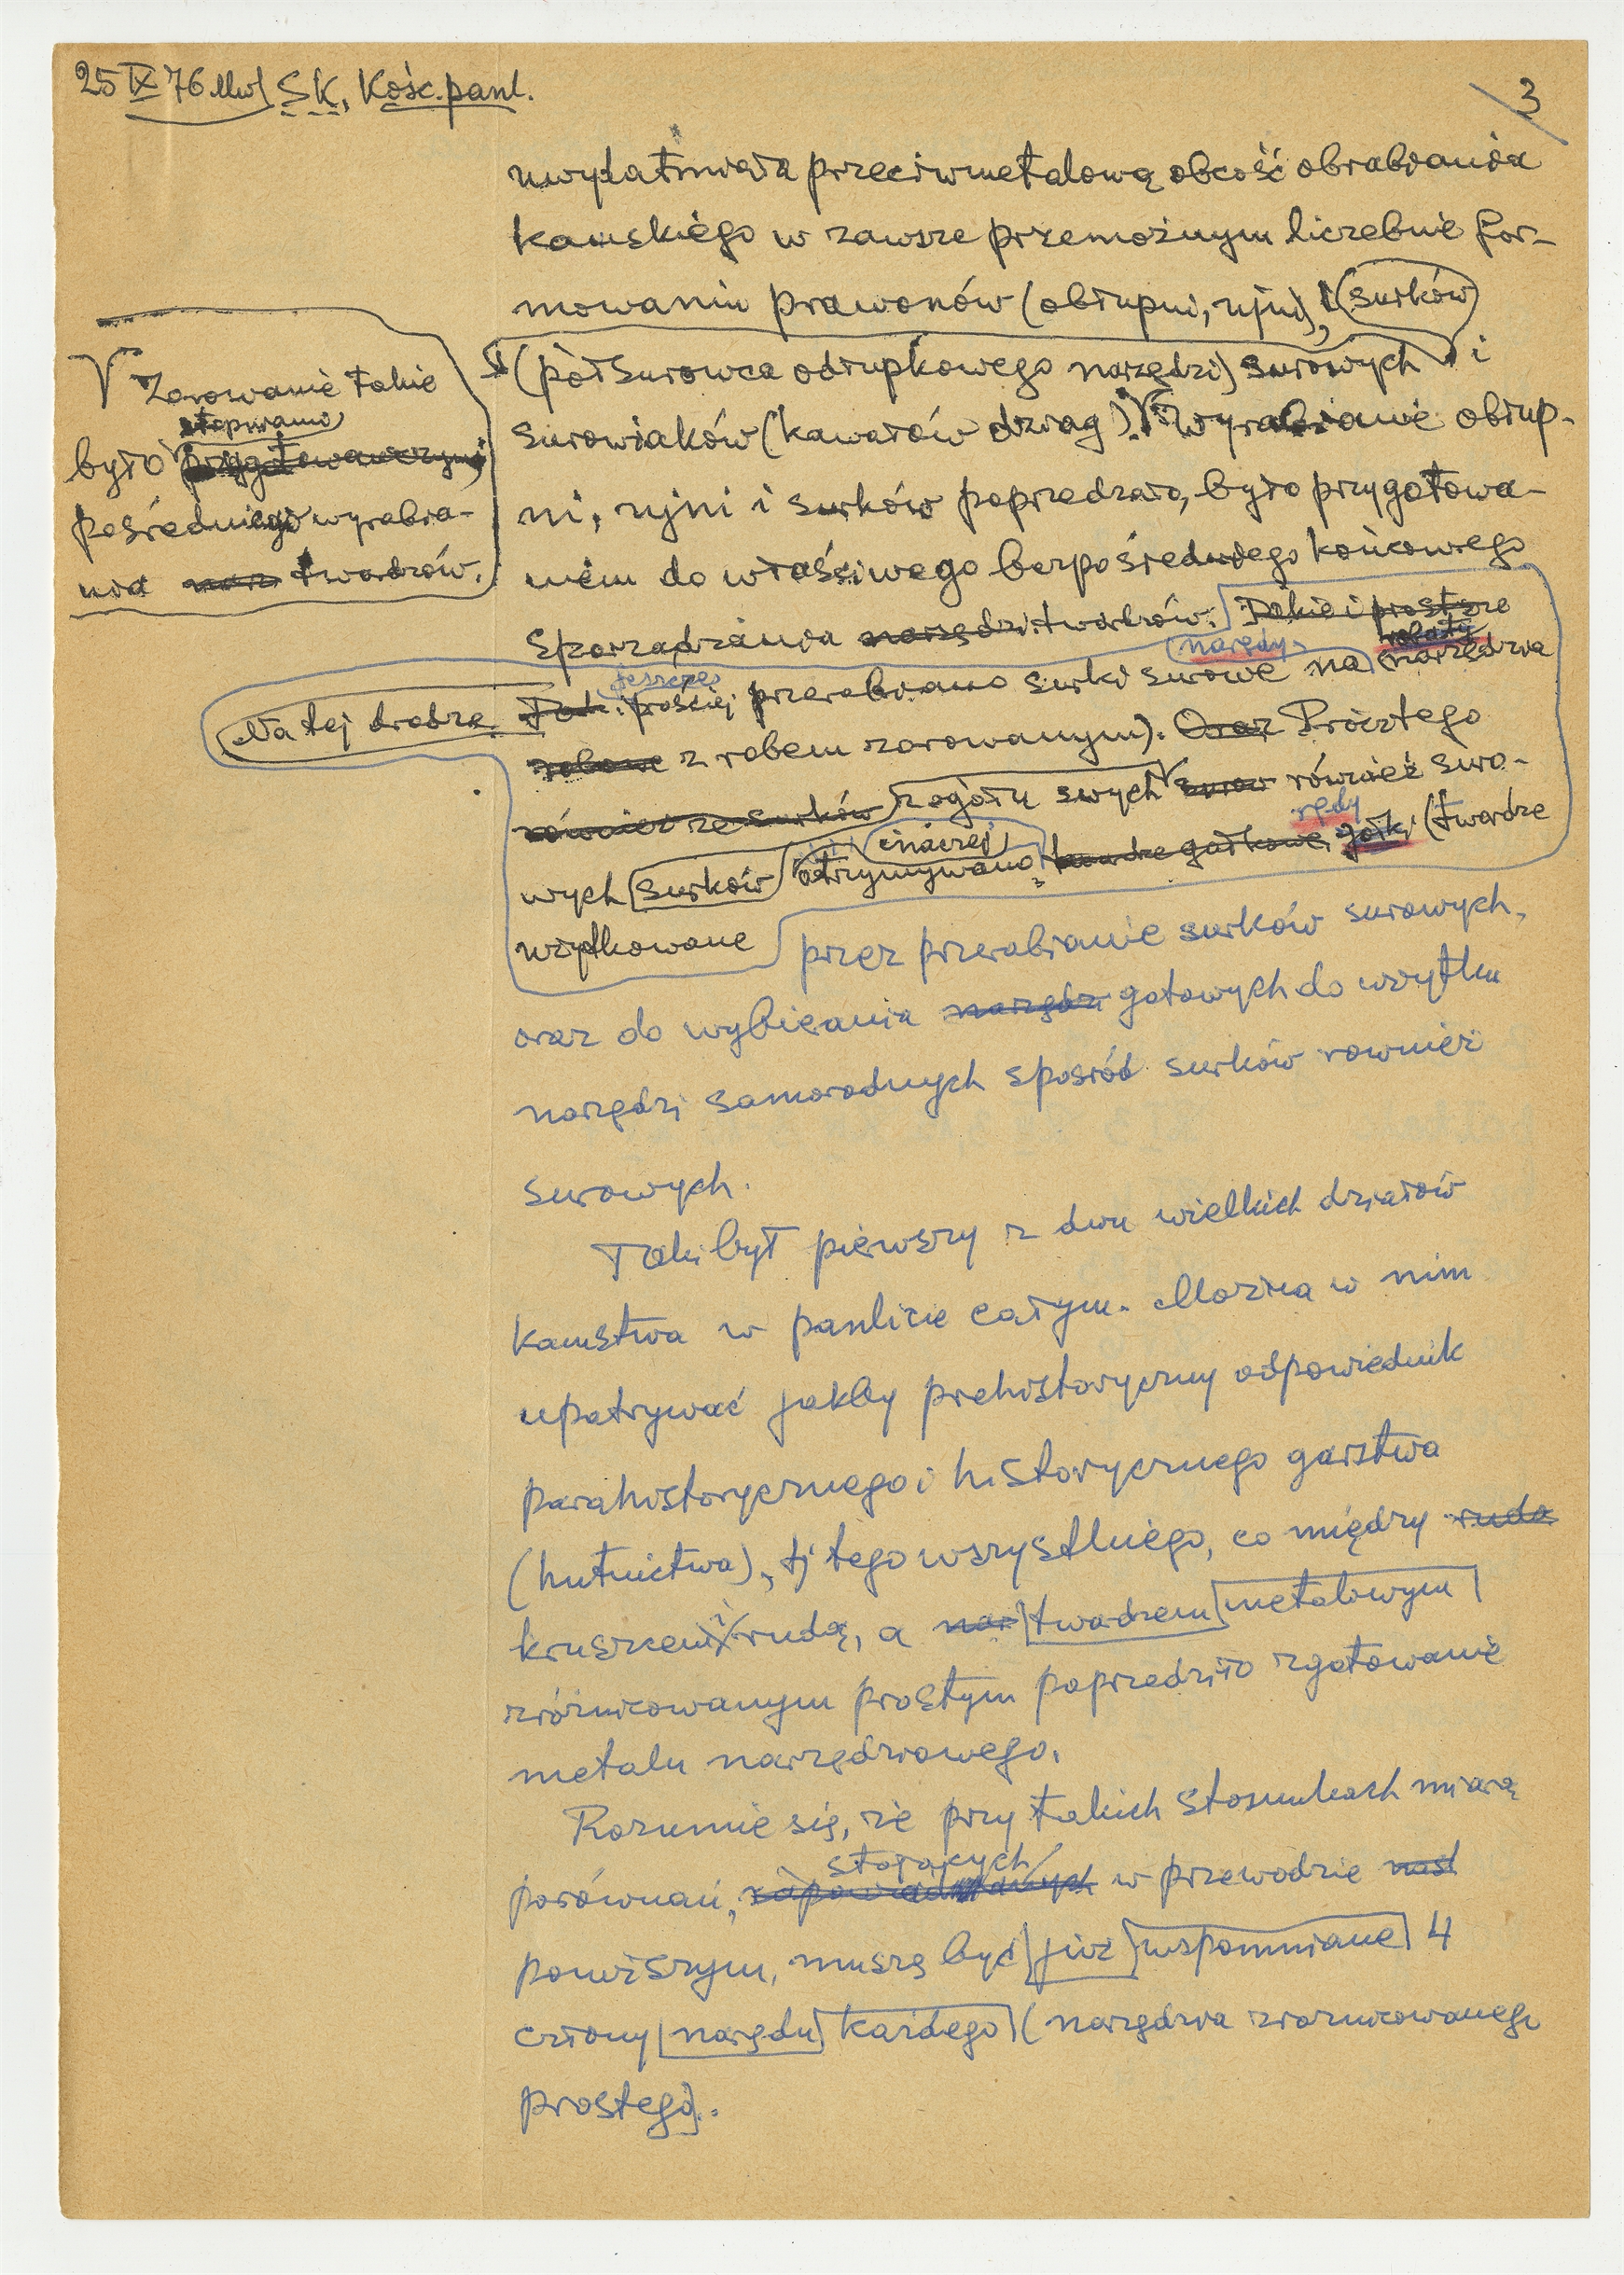 25 IX 76 Mw) SK, Kośc. panl.
3
uwydatniała przeciwmetalową obcość obrabiania
kamskiego w zawsze przemożnym liczebnie for-
mowaniu prawonów (obłupni, ryjni), (surków)
(półsurowca odłupkowego narzędzi) surowych i
surowiaków (kawałów drzag). Wyrabianie obłup-
ni, ryjni i surków poprzedzało, było przygotowa-
niem do właściwego bezpośredniego końcowego
sporządzania narzędzi twardzów. Takie i prostsze
Zarowanie takie
stopniano
było
pośredniego wyrabia-
nia narz twardzów.
narędy
robaty
jeszcze
Na tej drodze Tak. prościej przerabiano surki surowe na narzędzia
robowe z rabem zarowanym). Oraz Prócz tego
również ze surków z ogółu swych surow również suro-
rędy
inaczej
wych surków otrzymywano twardze gałkowe, gałk. (twardze
użytkowane przez przerabianie surków surowych,
oraz do wybierania narzędzi gotowych do użytku
narzędzi samorodnych spośród surków rownież
surowych.
Taki był pierwszy z dwu wielkich działów
kamstwa w panlicie całym. Można w nim
upatrywać jakby prehistoryczny odpowiednik
parahistorycznego i historycznego garstwa
(hutnictwa), tj tego wszystkiego, co między ruda
kruszcem i rudą, a nar twardzem metalowym
zróżnicowanym prostym poprzedziło zgotowanie
metalu narzędziowego.
Rozumie się, że przy takich stosunkach miarą
stojących
porównań, w przewodzie nast
powiższym, muszą być już wspomniane 4
człony narędu każdego (narzędzia zróżnicowanego
prostego).